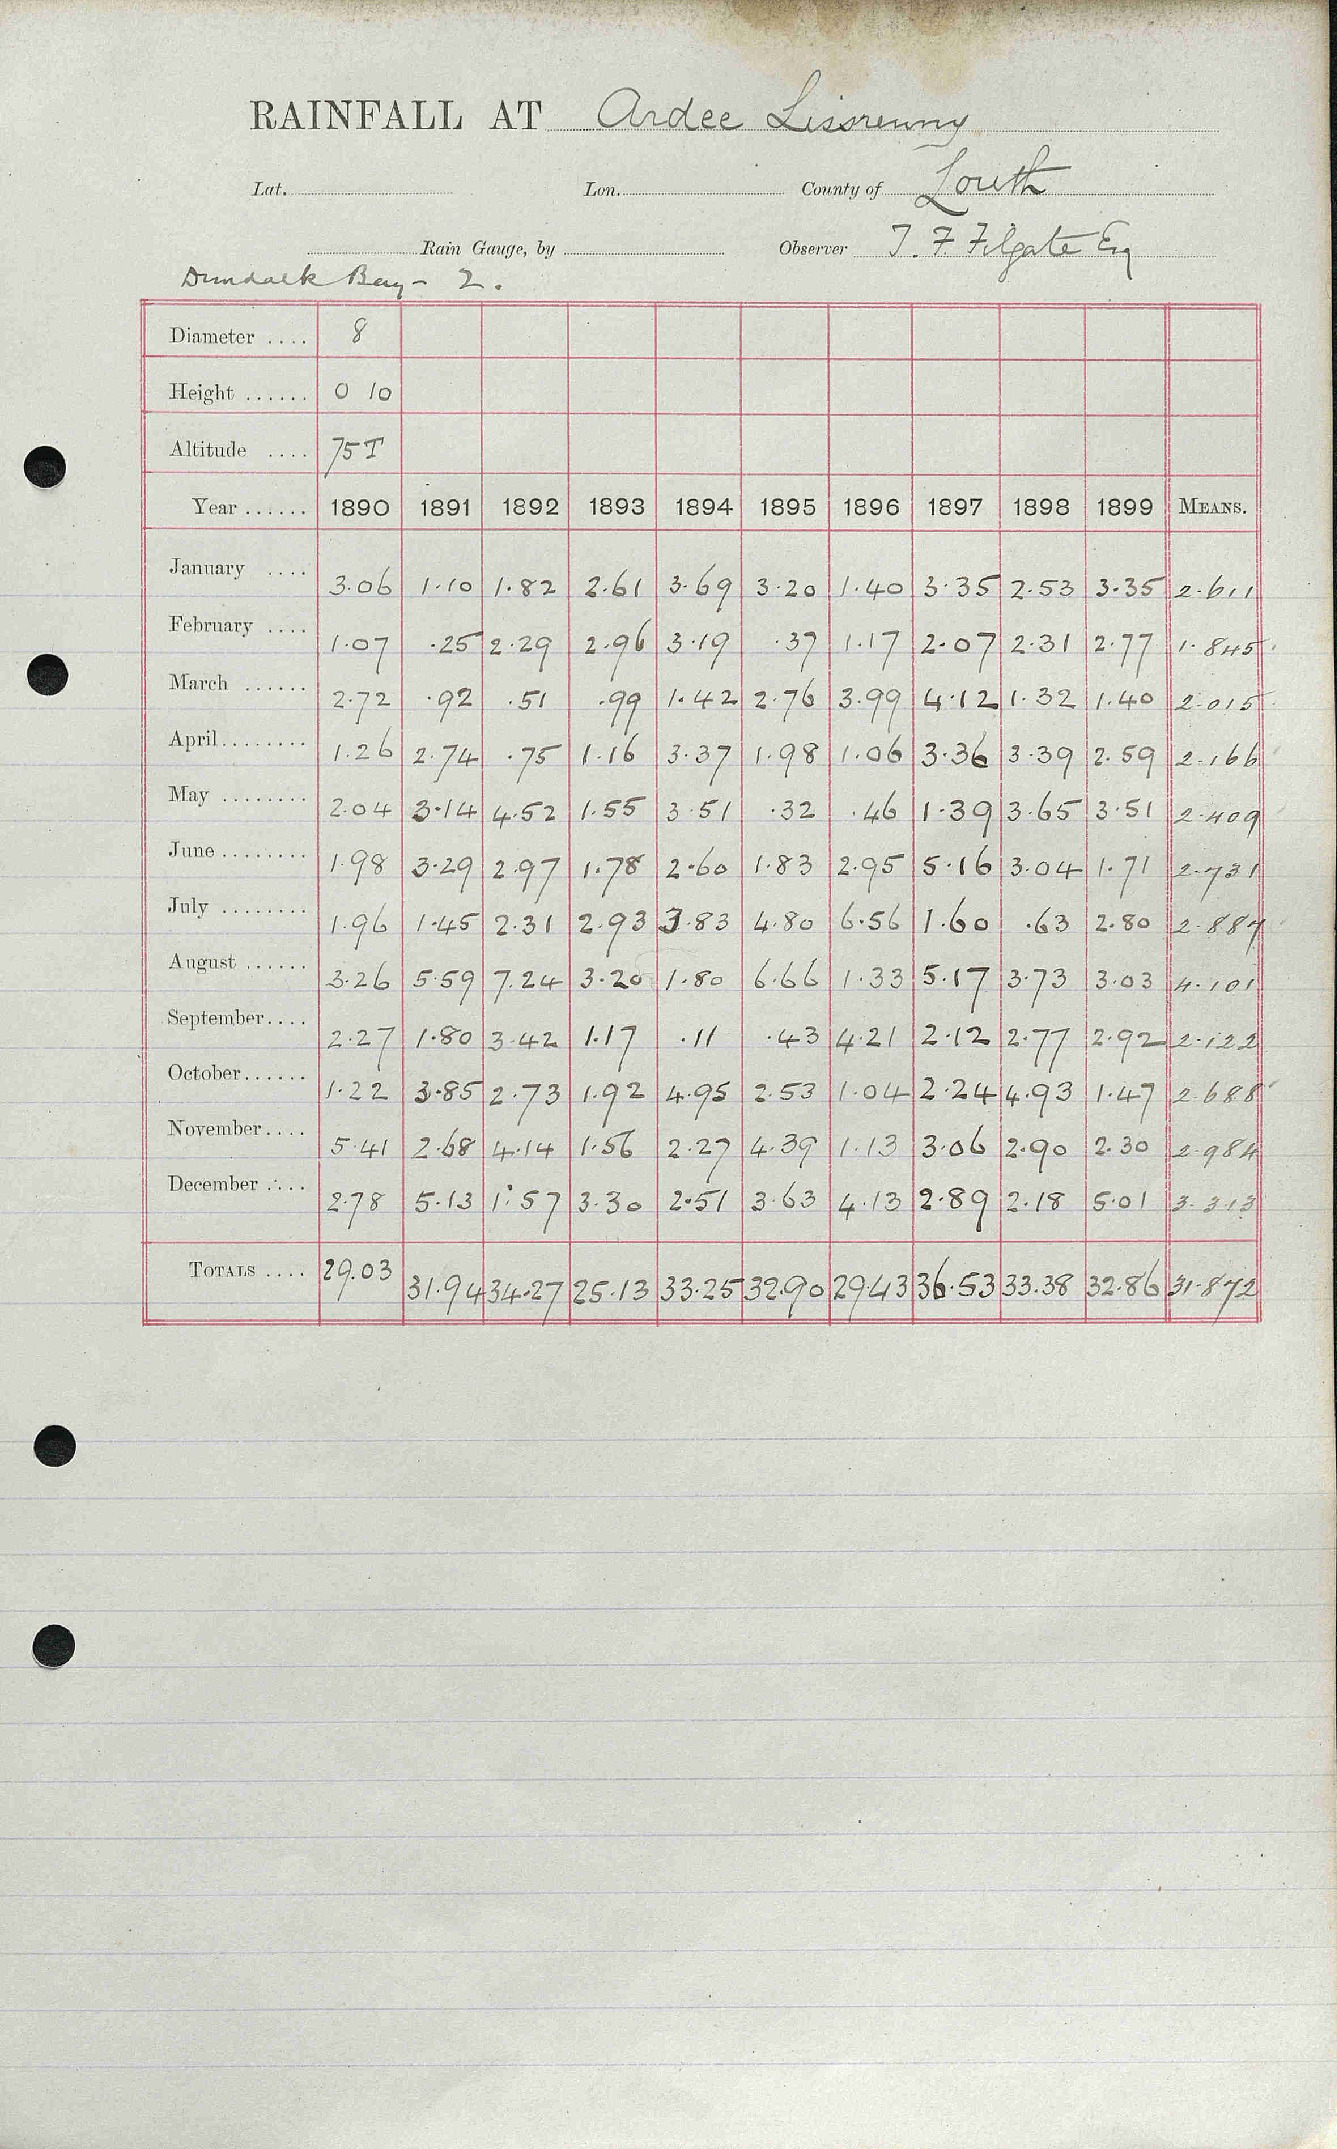 RAINFALL AT Ardee Lissrenny
Lat. Lon. County of Louth
Rain Gauge, by Observer T. F. Filgate Esq
Dundalk Bay - 2.
Diameter .... 8
Height ...... 0 10
Altitude .... 75 T
Year ...... 1890 1891 1892 1893 1894 1895 1896 1897 1898 1899 MEANS.
January .... 3.06 1.10 1.82 2.61 3.69 3.20 1.40 3.35 2.53 3.35 2.611
February .... 1.07 .25 2.29 2.96 3.19 .37 1.17 2.07 2.31 2.77 1.845
March ...... 2.72 .92 .51 .99 1.42 2.76 3.99 4.12 1.32 1.40 2.015
April........ 1.26 2.74 .75 1.16 3.37 1.98 1.06 3.36 3.39 2.59 2.166
May ........ 2.04 3.14 4.52 1.55 3.51 .32 .46 1.39 3.65 3.51 2.409
June........ 1.98 3.29 2.97 1.78 2.60 1.83 2.95 5.16 3.04 1.71 2.731
July ........ 1.96 1.45 2.31 2.93 3.83 4.80 6.56 1.60 .63 2.80 2.887
August ...... 3.26 5.59 7.24 3.20 1.80 6.66 1.33 5.17 3.73 3.03 4.101
September.... 2.27 1.80 3.42 1.17 .11 .43 4.21 2.12 2.77 2.92 2.122
October...... 1.22 3.85 2.73 1.92 4.95 2.53 1.04 2.24 4.93 1.47 2.688
November.... 5.41 2.68 4.14 1.56 2.27 4.39 1.13 3.06 2.90 2.30 2.984
December .... 2.78 5.13 1.57 3.30 2.51 3.63 4.13 2.89 2.18 5.01 3.313
TOTALS .... 29.03 31.94 34.27 25.13 33.25 32.90 29.43 36.53 33.38 32.86 31.872